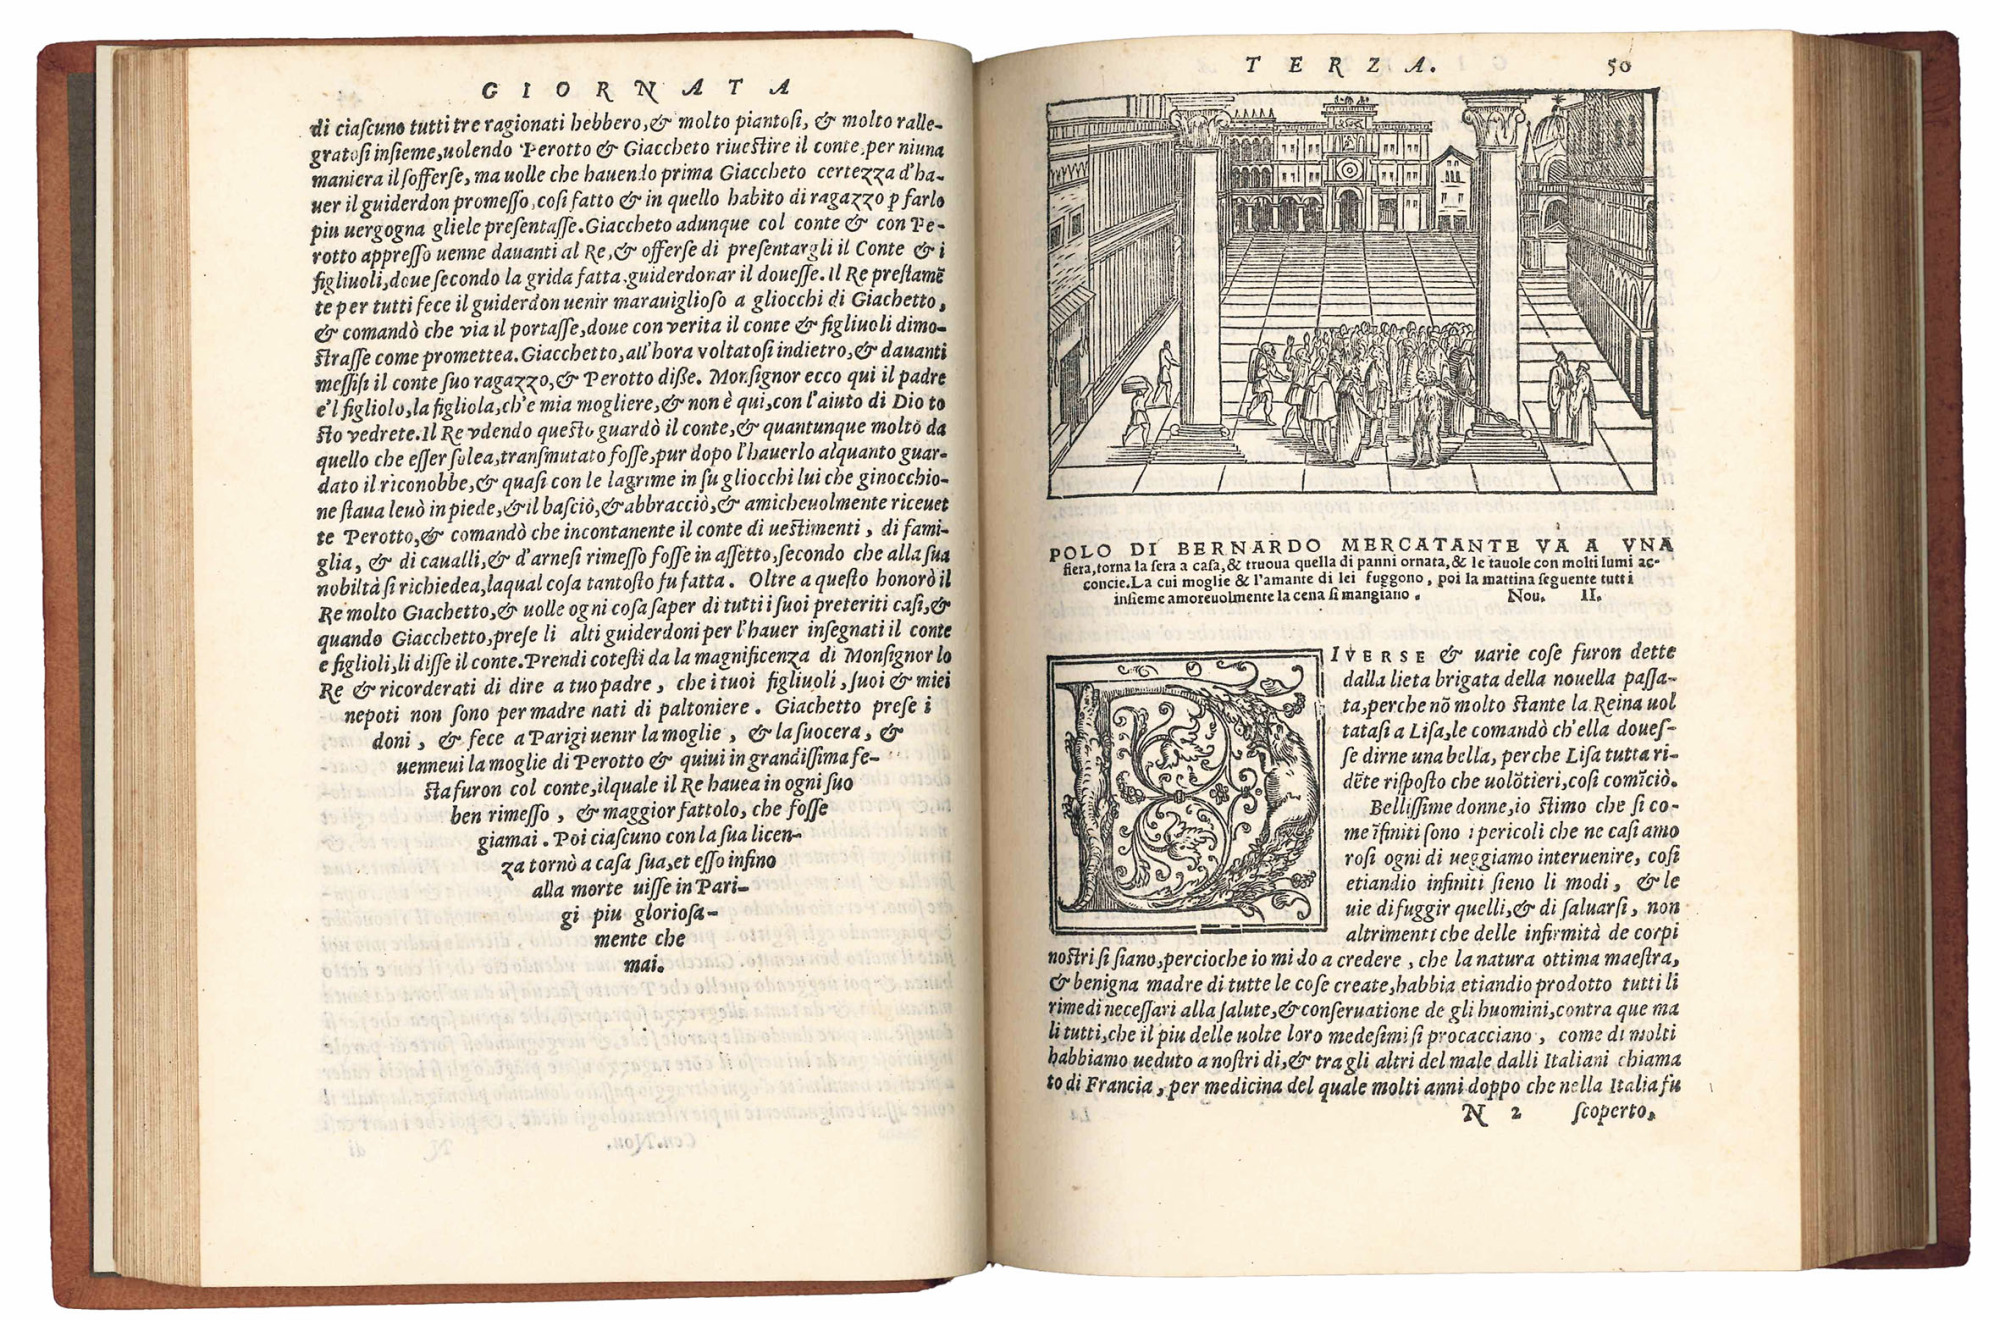 GIORNATA
di ciaſcuno tutti tre ragionati hebbero, & molto piantoſi, & molto ralle-
gratoſi inſieme, uolendo Perotto & Giaccheto riueſtire il conte, per niuna
maniera il ſofferſe, ma uolle che hauendo prima Giaccheto certezza d'ha-
uer il guiderdon promeſſo, coſi fatto & in quello habito di ragazzo ꝑ farlo
piu uergogna gliele preſentaſſe. Giaccheto adunque col conte & con Pe-
rotto appreſſo uenne dauanti al Re, & offerſe di preſentargli il Conte & i
figliuoli, doue ſecondo la grida fatta guiderdonar il doueſſe. Il Re preſtamē
te per tutti fece il guiderdon uenir marauiglioſo a gliocchi di Giachetto,
& comandò che via il portaſſe, doue con verita il conte & figliuoli dimo-
ſtraſſe come promettea. Giacchetto, all'hora voltatoſi indietro, & dauanti
meſſiſi il conte ſuo ragazzo, & Perotto diße. Monſignor ecco qui il padre
e'l figliolo, la figliola, ch'e mia mogliere, & non è qui, con l'aiuto di Dio to
ſto vedrete. Il Re vdendo queſto guardò il conte, & quantunque molto da
quello che eſſer ſolea, tranſmutato foſſe, pur dopo l'hauerlo alquanto guar-
dato il riconobbe, & quaſi con le lagrime in ſu gliocchi lui che ginocchio-
ne ſtaua leuò in piede, & il baſciò, & abbracciò, & amicheuolmente riceuet
te Perotto, & comandò che incontanente il conte di ueſtimenti, di fami-
glia, & di caualli, & d'arneſi rimeſſo foſſe in aſſetto, ſecondo che alla ſua
nobiltà ſi richiedea, laqual coſa tantoſto fu fatta. Oltre a queſto honorò il
Re molto Giachetto, & uolle ogni coſa ſaper di tutti i ſuoi preteriti caſi, &
quando Giacchetto, preſe li alti guiderdoni per l'hauer inſegnati il conte
e figlioli, li diſſe il conte. Prendi coteſti da la magnificenza di Monſignor lo
Re & ricorderati di dire a tuo padre, che i tuoi figliuoli, ſuoi & miei
nepoti non ſono per madre nati di paltoniere. Giachetto preſe i
doni, & fece a Parigi uenir la moglie, & la ſuocera, &
uenneui la moglie di Perotto & quiui in grandiſſima fe-
ſta furon col conte, ilquale il Re hauea in ogni ſuo
ben rimeſſo, & maggior fattolo, che foſſe
giamai. Poi ciaſcuno con la ſua licen-
za tornò a caſa ſua, et eſſo infino
alla morte uiſſe in Pari-
gi piu glorioſa-
mente che
mai.
TERZA. 50
POLO DI BERNARDO MERCATANTE VA A VNA
fiera, torna la ſera a caſa, & truoua quella di panni ornata, & le tauole con molti lumi ac-
concie. La cui moglie & l'amante di lei fuggono, poi la mattina ſeguente tutti
inſieme amoreuolmente la cena ſi mangiano. Nou. II.
DIVERSE & uarie coſe furon dette
dalla lieta brigata della nouella paſſa-
ta, perche nō molto ſtante la Reina uol
tataſi a Liſa, le comandò ch'ella doueſ-
ſe dirne una bella, perche Liſa tutta ri-
dēte riſpoſto che uolōtieri, coſi comīciò.
Belliſſime donne, io ſtimo che ſi co-
me īfiniti ſono i pericoli che ne caſi amo
roſi ogni di ueggiamo interuenire, coſi
etiandio infiniti ſieno li modi, & le
uie di fuggir quelli, & di ſaluarſi, non
altrimenti che delle infirmità de corpi
noſtri ſi ſiano, percioche io mi do a credere, che la natura ottima maeſtra,
& benigna madre di tutte le coſe create, habbia etiandio prodotto tutti li
rimedi neceſſari alla ſalute, & conſeruatione de gli huomini, contra que ma
li tutti, che il piu delle uolte loro medeſimi ſi procacciano, come di molti
habbiamo ueduto a noſtri di, & tra gli altri del male dalli Italiani chiama
to di Francia, per medicina del quale molti anni doppo che nella Italia fu
N 2 ſcoperto,